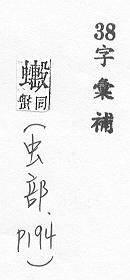 38字彙補
同
(虫部、P194)